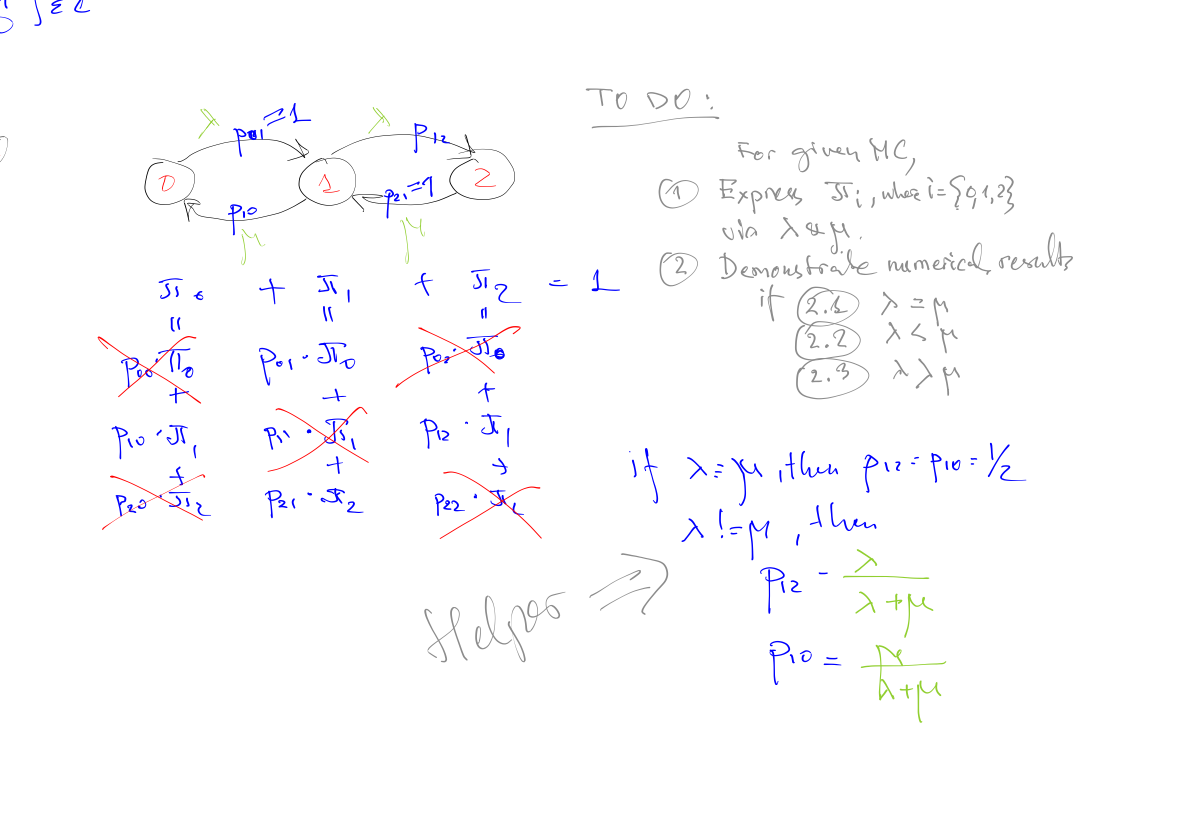 λ p01 = 1 λ p12
0 1 2
p10 p21 = 1
μ μ
π0 + π1 + π2 = 1
= = =
p00 · π0 p01 · π0 p02 · π0
+ + +
p10 · π1 p11 · π1 p12 · π1
+ + +
p20 · π2 p21 · π2 p22 · π2
TO DO:
For given MC,
① Express πi, where i={0,1,2}
via λ & μ.
② Demonstrate numerical results
if 2.1 λ = μ
2.2 λ < μ
2.3 λ > μ
if λ = μ, then p12 = p10 = 1/2
λ != μ, then
p12 = λ / λ+μ
p10 = μ / λ+μ
Helper ⇒